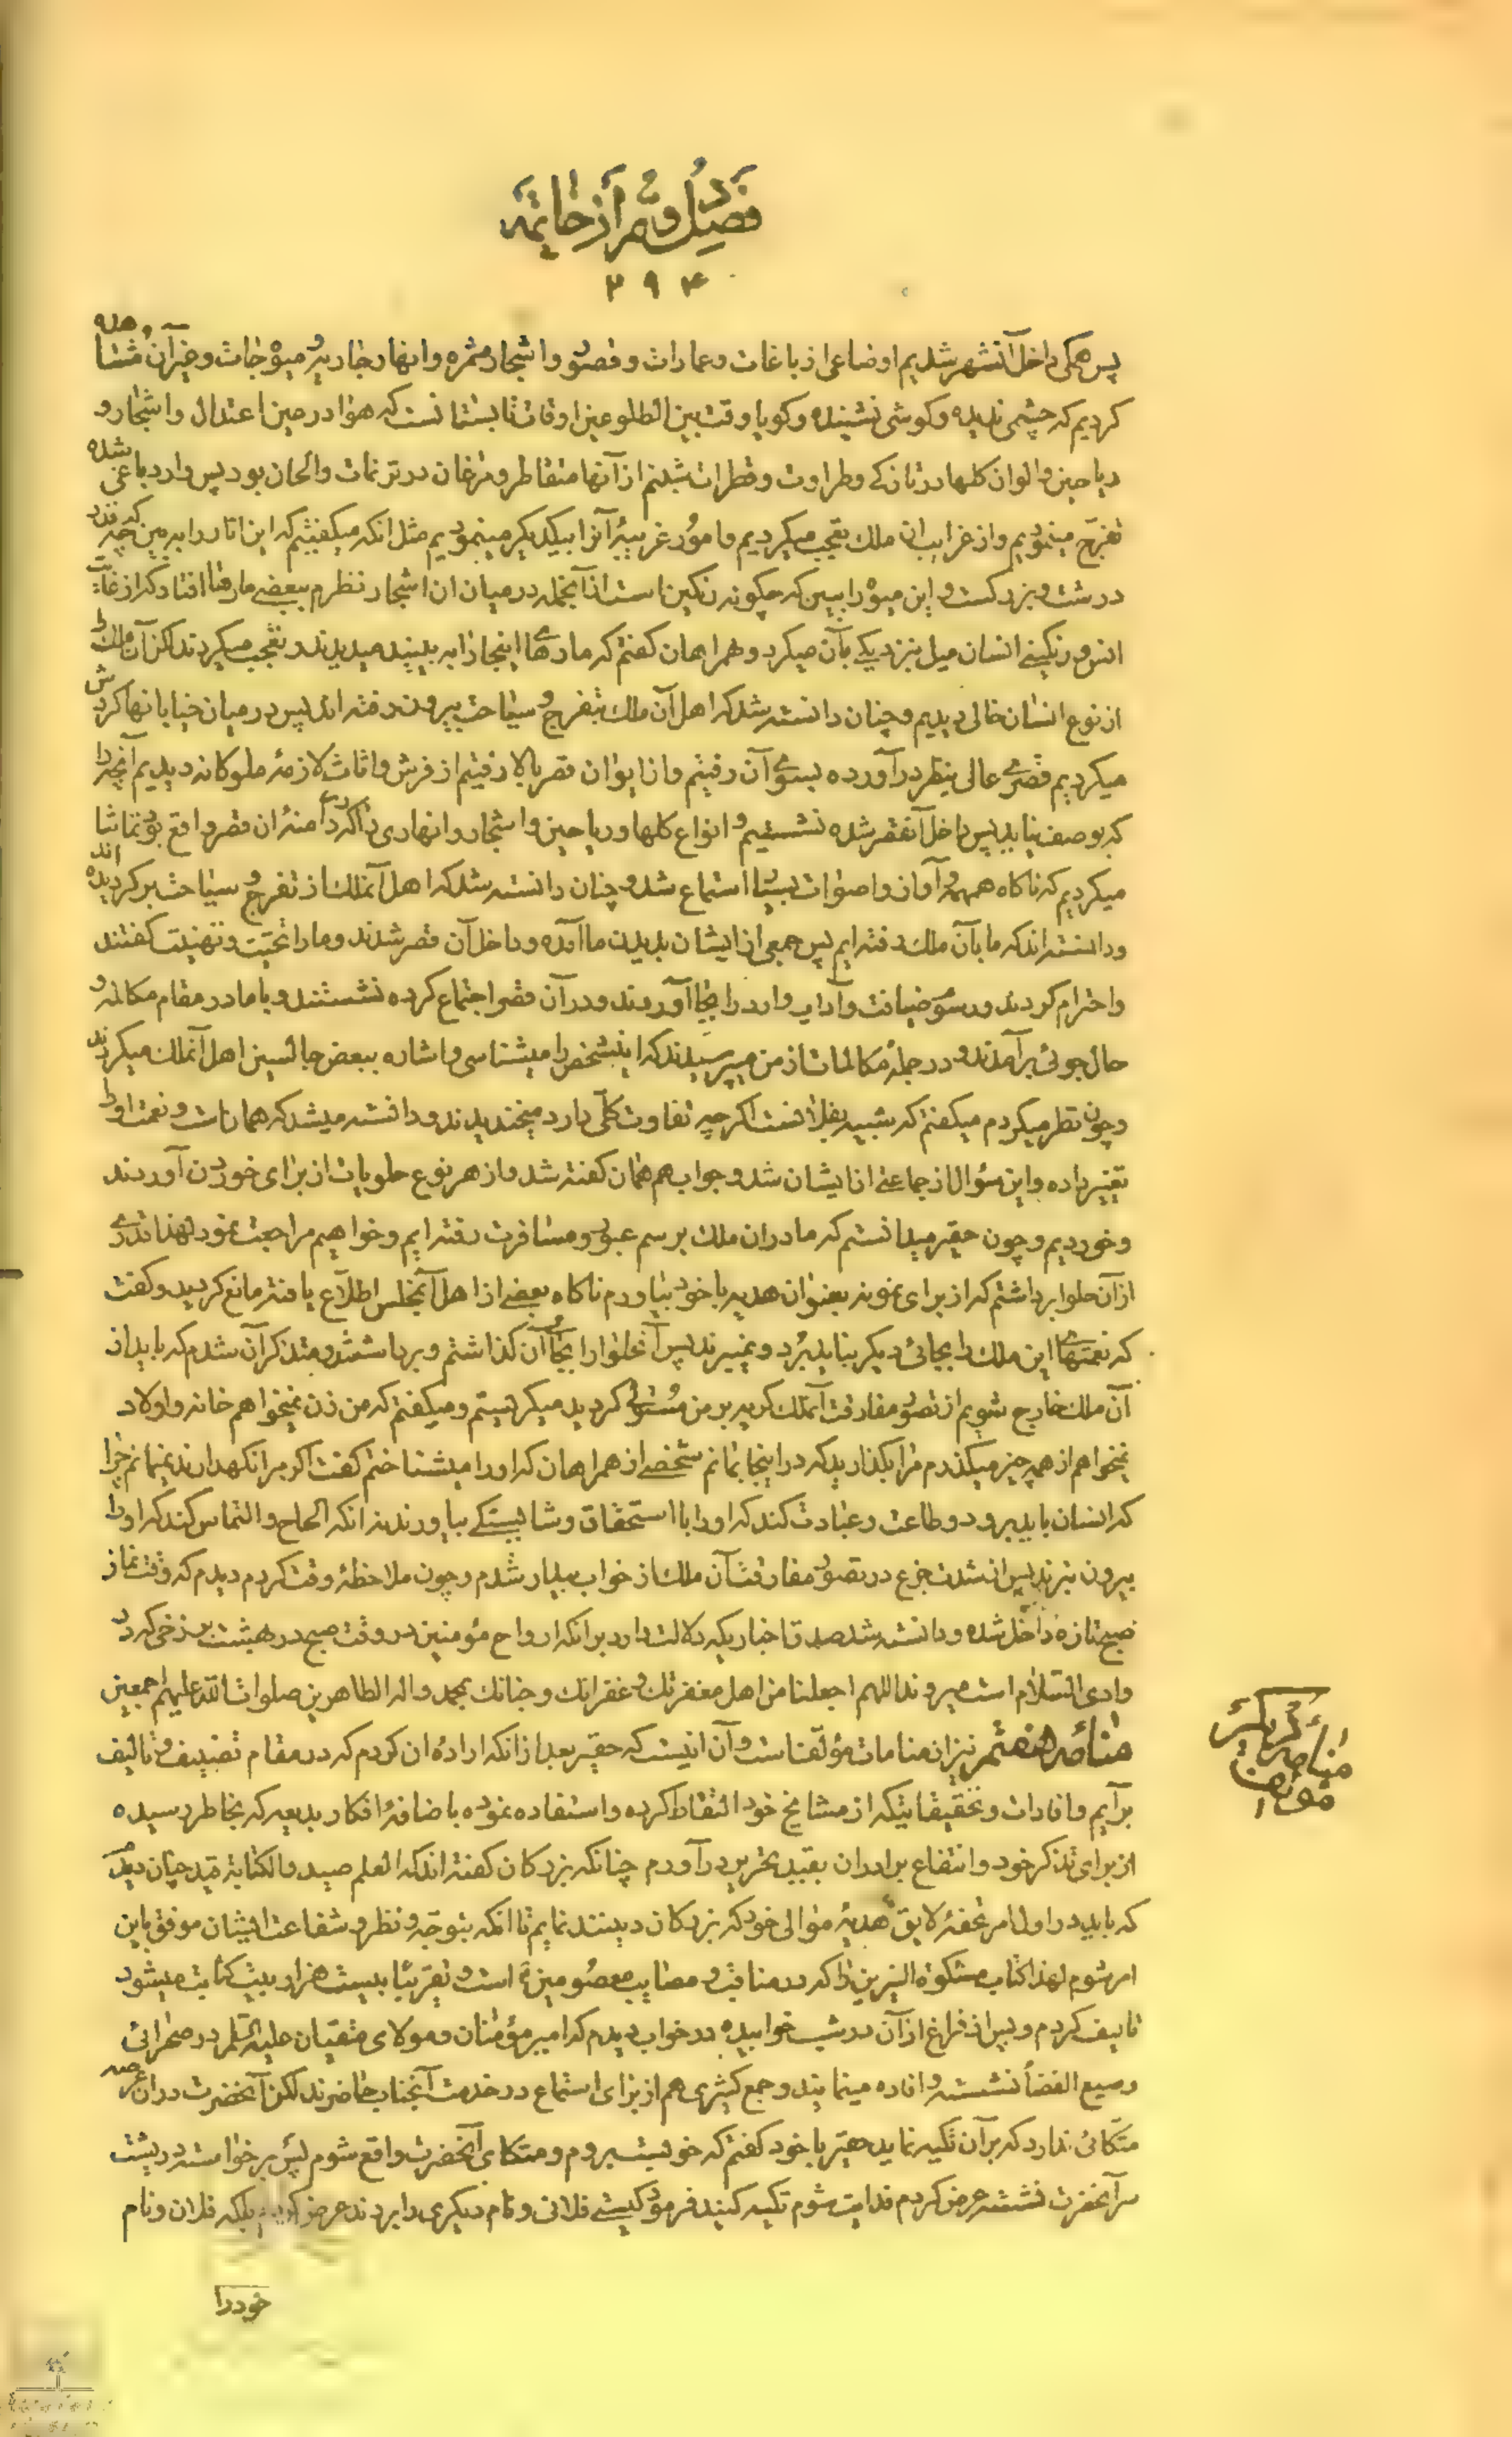 فصل دویم از خاتمه
۲۹۴
پس همکی داخل آنشهر شدیم اوضاعی از باغات وعمارات وقصور واشجار مثمره وانهار جاریه ومیوه جات وغیر آن مشاهده
کردیم که چشمی ندیده وکوشی نشنیده وکویا وقت بین الطلوعین اوقات تابستانست که هوا در عین اعتدال واشجار و
ریاحین والوان کلها در تازکی وطراوت وقطرات شبنم از آنها متقاطر ومرغان در ترنمات والحان بود پس وارد باغی شده
تفرج مینمودیم واز غرایب ان ملک تعجب میکردیم وامور غریبهٔ آنرا بیکدیکر مینمودیم مثل انکه میکفتیم که این انار را ببین که چه قدر
درشت وبزرکست واین میوه را ببین که چکونه رنکین است از آنجمله در میان ان اشجار نظرم ببعضی مارها افتاد که از غایت
انس ورنکینی انسان میل بنزدیکی بآن میکرد وهمراهان کفتم که مارهای اینجا را به بینید میدیدند وتعجب میکردند لکن آن ملک را
از نوع انسان خالی دیدیم وچنان دانسته شد که اهل آن ملک بتفرج وسیاحت بیرون رفته اند پس در میان خیابانها کردش
میکردیم قصری عالی بنظر درآورده بسوی آن رفتیم واز ایوان قصر بالا رفتیم از فرش واثاث لازمهٔ ملوکانه دیدیم آنچه را
که بوصف نیاید پس داخل آنقصر شده نشستیم وانواع کلها وریاحین واشجار وانهاری را که در دامنهٔ ان قصر واقع بود تماشا
میکردیم که ناکاه همهمه وآواز واصوات بسیار استماع شد وچنان دانسته شد که اهل آنملک از تفرج وسیاحت برکردیده اند
ودانسته اند که ما بآن ملک رفته ایم پس جمعی از ایشان بدیدن ما آمده وداخل آن قصر شدند وما را تحیت وتهنیت کفتند
واحترام کردند ورسوم ضیافت وآداب وارد را بجا آوردند ودر آن قصر اجتماع کرده نشستند وبا ما در مقام مکالمه و
حال جوئی برآمدند ودر جملهٔ مکالمات از من میپرسیدند که اینشخص را میشناسی واشاره ببعض جالسین اهل آنملک میکردند
وچون نظر میکردم میکفتم که شبیه بفلانست اکرچه تفاوت کلی دارد میخندیدند ودانسته میشد که همانست ونعمت او را
تغییر داده واین سؤال از جماعتی از ایشان شد وجواب هم همان کفته شد واز هر نوع حلویات از برای خوردن آوردند
وخوردیم وچون حقیر میدانستم که ما در ان ملک برسم عبور ومسافرت رفته ایم وخواهیم مراجعت نمود لهذا قدری
از آن حلوا برداشتم که از برای نمونه بعنوان هدیه با خود بیاورم ناکاه بعضی از اهل آنمجلس اطلاع یافته مانع کردید وکفت
که نعمتهای این ملک را بجائی دیکر نباید برد ونمیبرند پس آنحلوا را بجای آن کذاشتم وبرداشتند ومتذکر آن شدم که باید از
آن ملک خارج شویم از تصور مفارقت آنملک کریه بر من مستولی کردید میکریستم ومیکفتم که من زن نمیخواهم خانه واولاد
نمیخواهم از همه چیز میکذرم مرا بکذارید که در اینجا بمانم شخصی از همراهان که او را میشناختم کفت اکر مرا نکهدارند نمیمانم چرا
که انسان باید برود وطاعت وعبادت کند که او را با استحقاق وشایستکی بیاورند نه انکه الحاح والتماس کند که او را
بیرون نبرند پس از شدت جزع در تصور مفارقت آن ملک از خواب بیدار شدم وچون ملاحظهٔ وقت کردم دیدم که وقت نماز
صبح تازه داخل شده ودانسته شد صدق اخباریکه دلالت دارد بر انکه ارواح مؤمنین در وقت صبح در بهشت برزخی که در
وادی السلام است میروند اللهم اجعلنا من اهل مغفرتک وغفرانک وجنانک بمحمد واله الطاهرین صلوات الله علیهم اجمعین
منامهٔ هفتم نیز از منامات مؤلفست وآن اینست که حقیر بعد از انکه ارادهٔ ان کردم که در مقام تصنیف وتالیف
برآیم وافادات وتحقیقاتیکه از مشایخ خود التقاط کرده واستفاده نموده باضافهٔ افکار بدیعه که بخاطر رسیده
از برای تذکر خود وانتفاع برادران بقید تحریر درآورم چنانکه بزرکان کفته اند که العلم صید والکتابة قید چنان دیدم
که باید در اول امر تحفهٔ لایق هدیهٔ موالی خود که بزرکان دینند نمایم تا انکه بتوجه ونظر وشفاعت ایشان موفق باین
امر شوم لهذا کتاب مشکوة النیرین را که در مناقب ومصایب معصومین است وتقریبا بیست هزار بیت کتابت میشود
تالیف کردم وپس از فراغ از آن در شب خوابیده در خواب دیدم که امیر مؤمنان ومولای متقیان علیه السلام در صحرائی
وسیع الفضا نشسته وافاده مینمایند وجمع کثیری هم از برای استماع در خدمت آنجناب حاضرند لکن آنحضرت در ان عرصه
متکائی ندارد که بر آن تکیه نماید حقیر با خود کفتم که خوبست بروم ومتکای آنحضرت واقع شوم پس برخواسته در پشت
سر آنحضرت نشسته عرض کردم فدایت شوم تکیه کنید فرمود کیستی فلانی ونام دیکری را بردند عرض کردم بلکه فلان ونام
خود را
منامهٔ دیکر
مؤلف